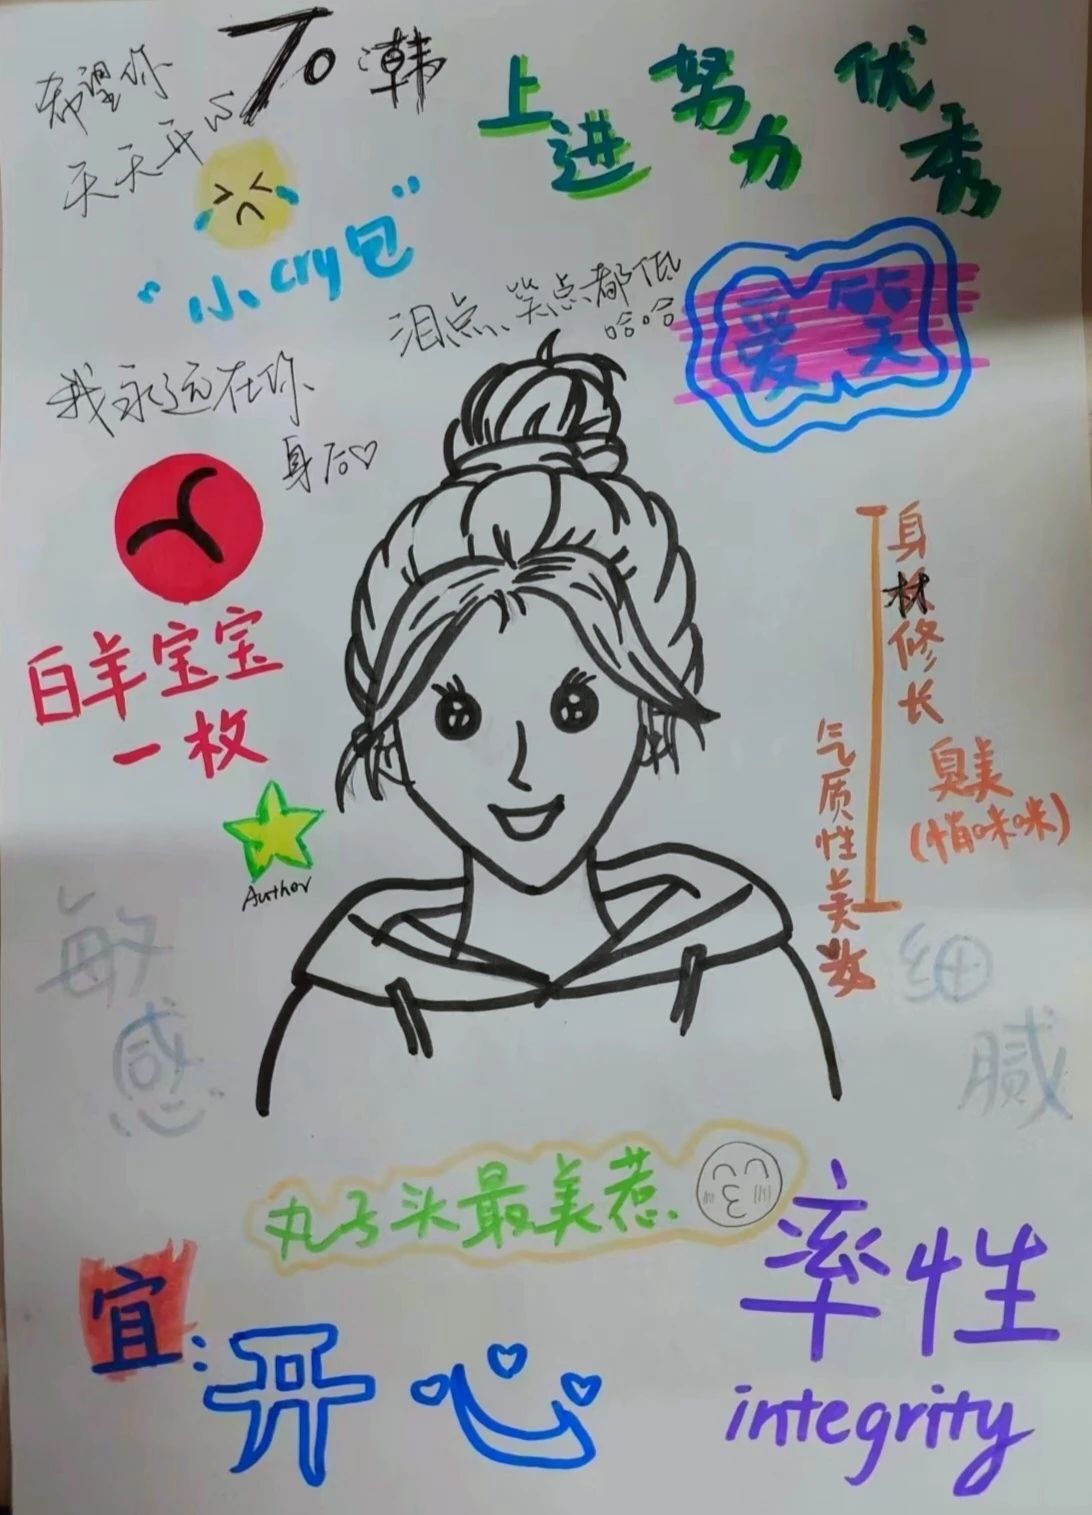 To:韩
希望你
天天开心
上进 努力 优秀
"小cry包"
泪点、笑点都低
哈哈
爱笑
我永远在你
身后♡
白羊宝宝
一枚
Author
身材修长
气质性美女
臭美
(悄咪咪)
敏感
细腻
丸子头最美惹
宜:开心
率性
integrity